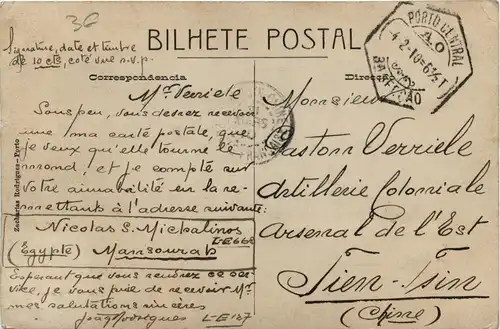 3€
Signature, date et timbre
de 10 cts, coté vue s.v.p.
BILHETE POSTAL
Correspondencia
Direcção
PORTO CENTRAL
4-2-10-6½T
3A SECÇÃO
Zacharias Rodrigues-Porto
Mr Verriele
Sous peu, vous devrez recevoir
une ma carte postale, que
je veux qu'elle tourne le
mond, et je compte sur
votre aimabilité en la re-
mettant à l'adresse suivante:
Nicolas S. Michalinos
LE668
(Egypte) Mansourah
Esperant que vous rendrez ce ser-
vice, je vous prie de recevoir Mr
mes salutations sincères
LE127
Monsieur
Gaston Verriele
Artillerie Coloniale
Arsenal de l'Est
Tien-Tsin
(Chine)